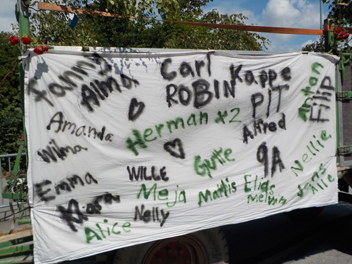 Fanny
Alma
Carl
Kappe
ROBIN
PIT
Anton
Filip
Amanda
Herman x2
Alfred
Wilma
Gutte
9A
Nellie
Emma
WILLE
Meja
Mattis
Elias
Melwin
Alice
Nelly
Alice